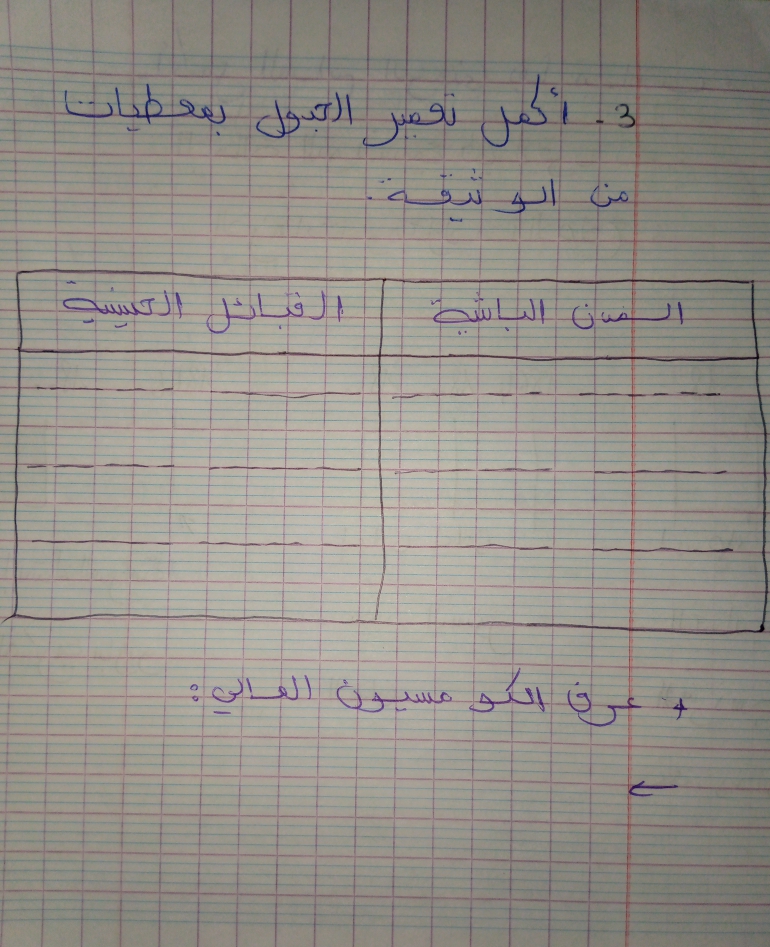 3 - أكمل تعمير الجدول بمعطيات
من الوثيقة.
المدن الباشية
القبائل الحسينية
+ عرف الكومسيون المالي:
←